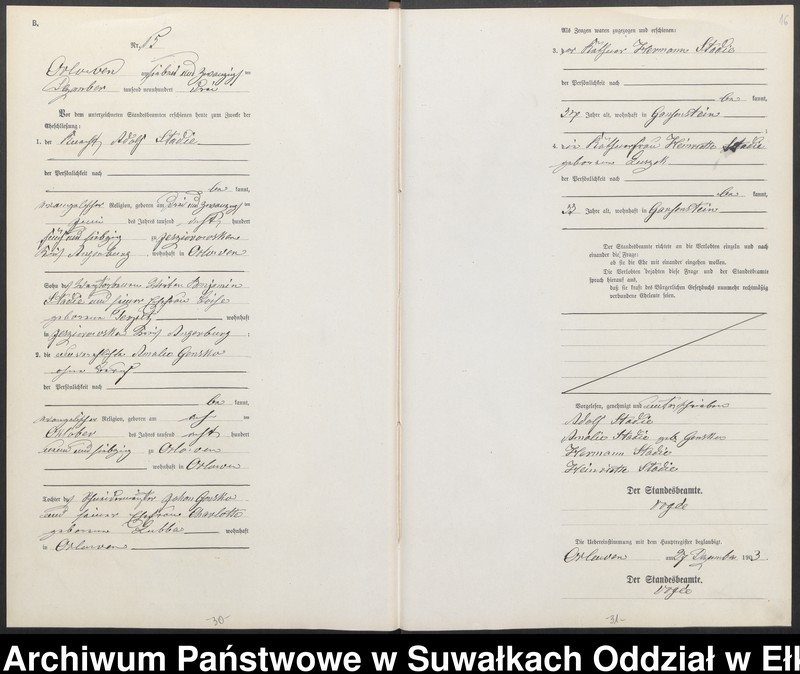 B.
Nr. 15
Orlowen am sieben und zwanzigsten
Dezember tausend neunhundert drei
Vor dem unterzeichneten Standesbeamten erschienen heute zum Zweck der
Eheschließung:
1. der Knecht Adolf Stadie
der Persönlichkeit nach
be kannt,
evangelischer Religion, geboren am drei und zwanzigsten
Juni des Jahres tausend acht hundert
fünf und siebzig zu Jesziorowsken
Kreis Angerburg, wohnhaft in Orlowen
Sohn des Benjamin
Stadie und seiner Ehefrau Luise
geborene wohnhaft
in Jesziorowsken Kreis Angerburg;
2. die unverehelichte Amalie Gonska
ohne Beruf
der Persönlichkeit nach
be kannt,
evangelischer Religion, geboren am
Oktober des Jahres tausend acht hundert
neun und siebzig zu Orlowen
wohnhaft in Orlowen
Tochter des Schneidermeister Gonska
und seiner Ehefrau Charlotte
geborene Lubba wohnhaft
in Orlowen
-30-
16
Als Zeugen waren zugezogen und erschienen:
3. der Käthner Hermann Stadie
der Persönlichkeit nach
be kannt,
37 Jahre alt, wohnhaft in Gansenstein
;
4. die Käthnerfrau Heinriette Stadie
geborene
der Persönlichkeit nach
be kannt,
32 Jahre alt, wohnhaft in Gansenstein
Der Standesbeamte richtete an die Verlobten einzeln und nach
einander die Frage:
ob sie die Ehe mit einander eingehen wollen.
Die Verlobten bejahten diese Frage und der Standesbeamte
sprach hierauf aus,
daß sie kraft des Bürgerlichen Gesetzbuchs nunmehr rechtmäßig
verbundene Eheleute seien.
Vorgelesen, genehmigt und unterschrieben
Adolf Stadie
Amalie Stadie geb. Gonska
Hermann Stadie
Heinriette Stadie
Der Standesbeamte.
Vogde
Die Uebereinstimmung mit dem Hauptregister beglaubigt.
Orlowen am 27 Dezember 1903.
Der Standesbeamte.
Vogde
-31-
Archiwum Państwowe w Suwałkach Oddział w Ełk